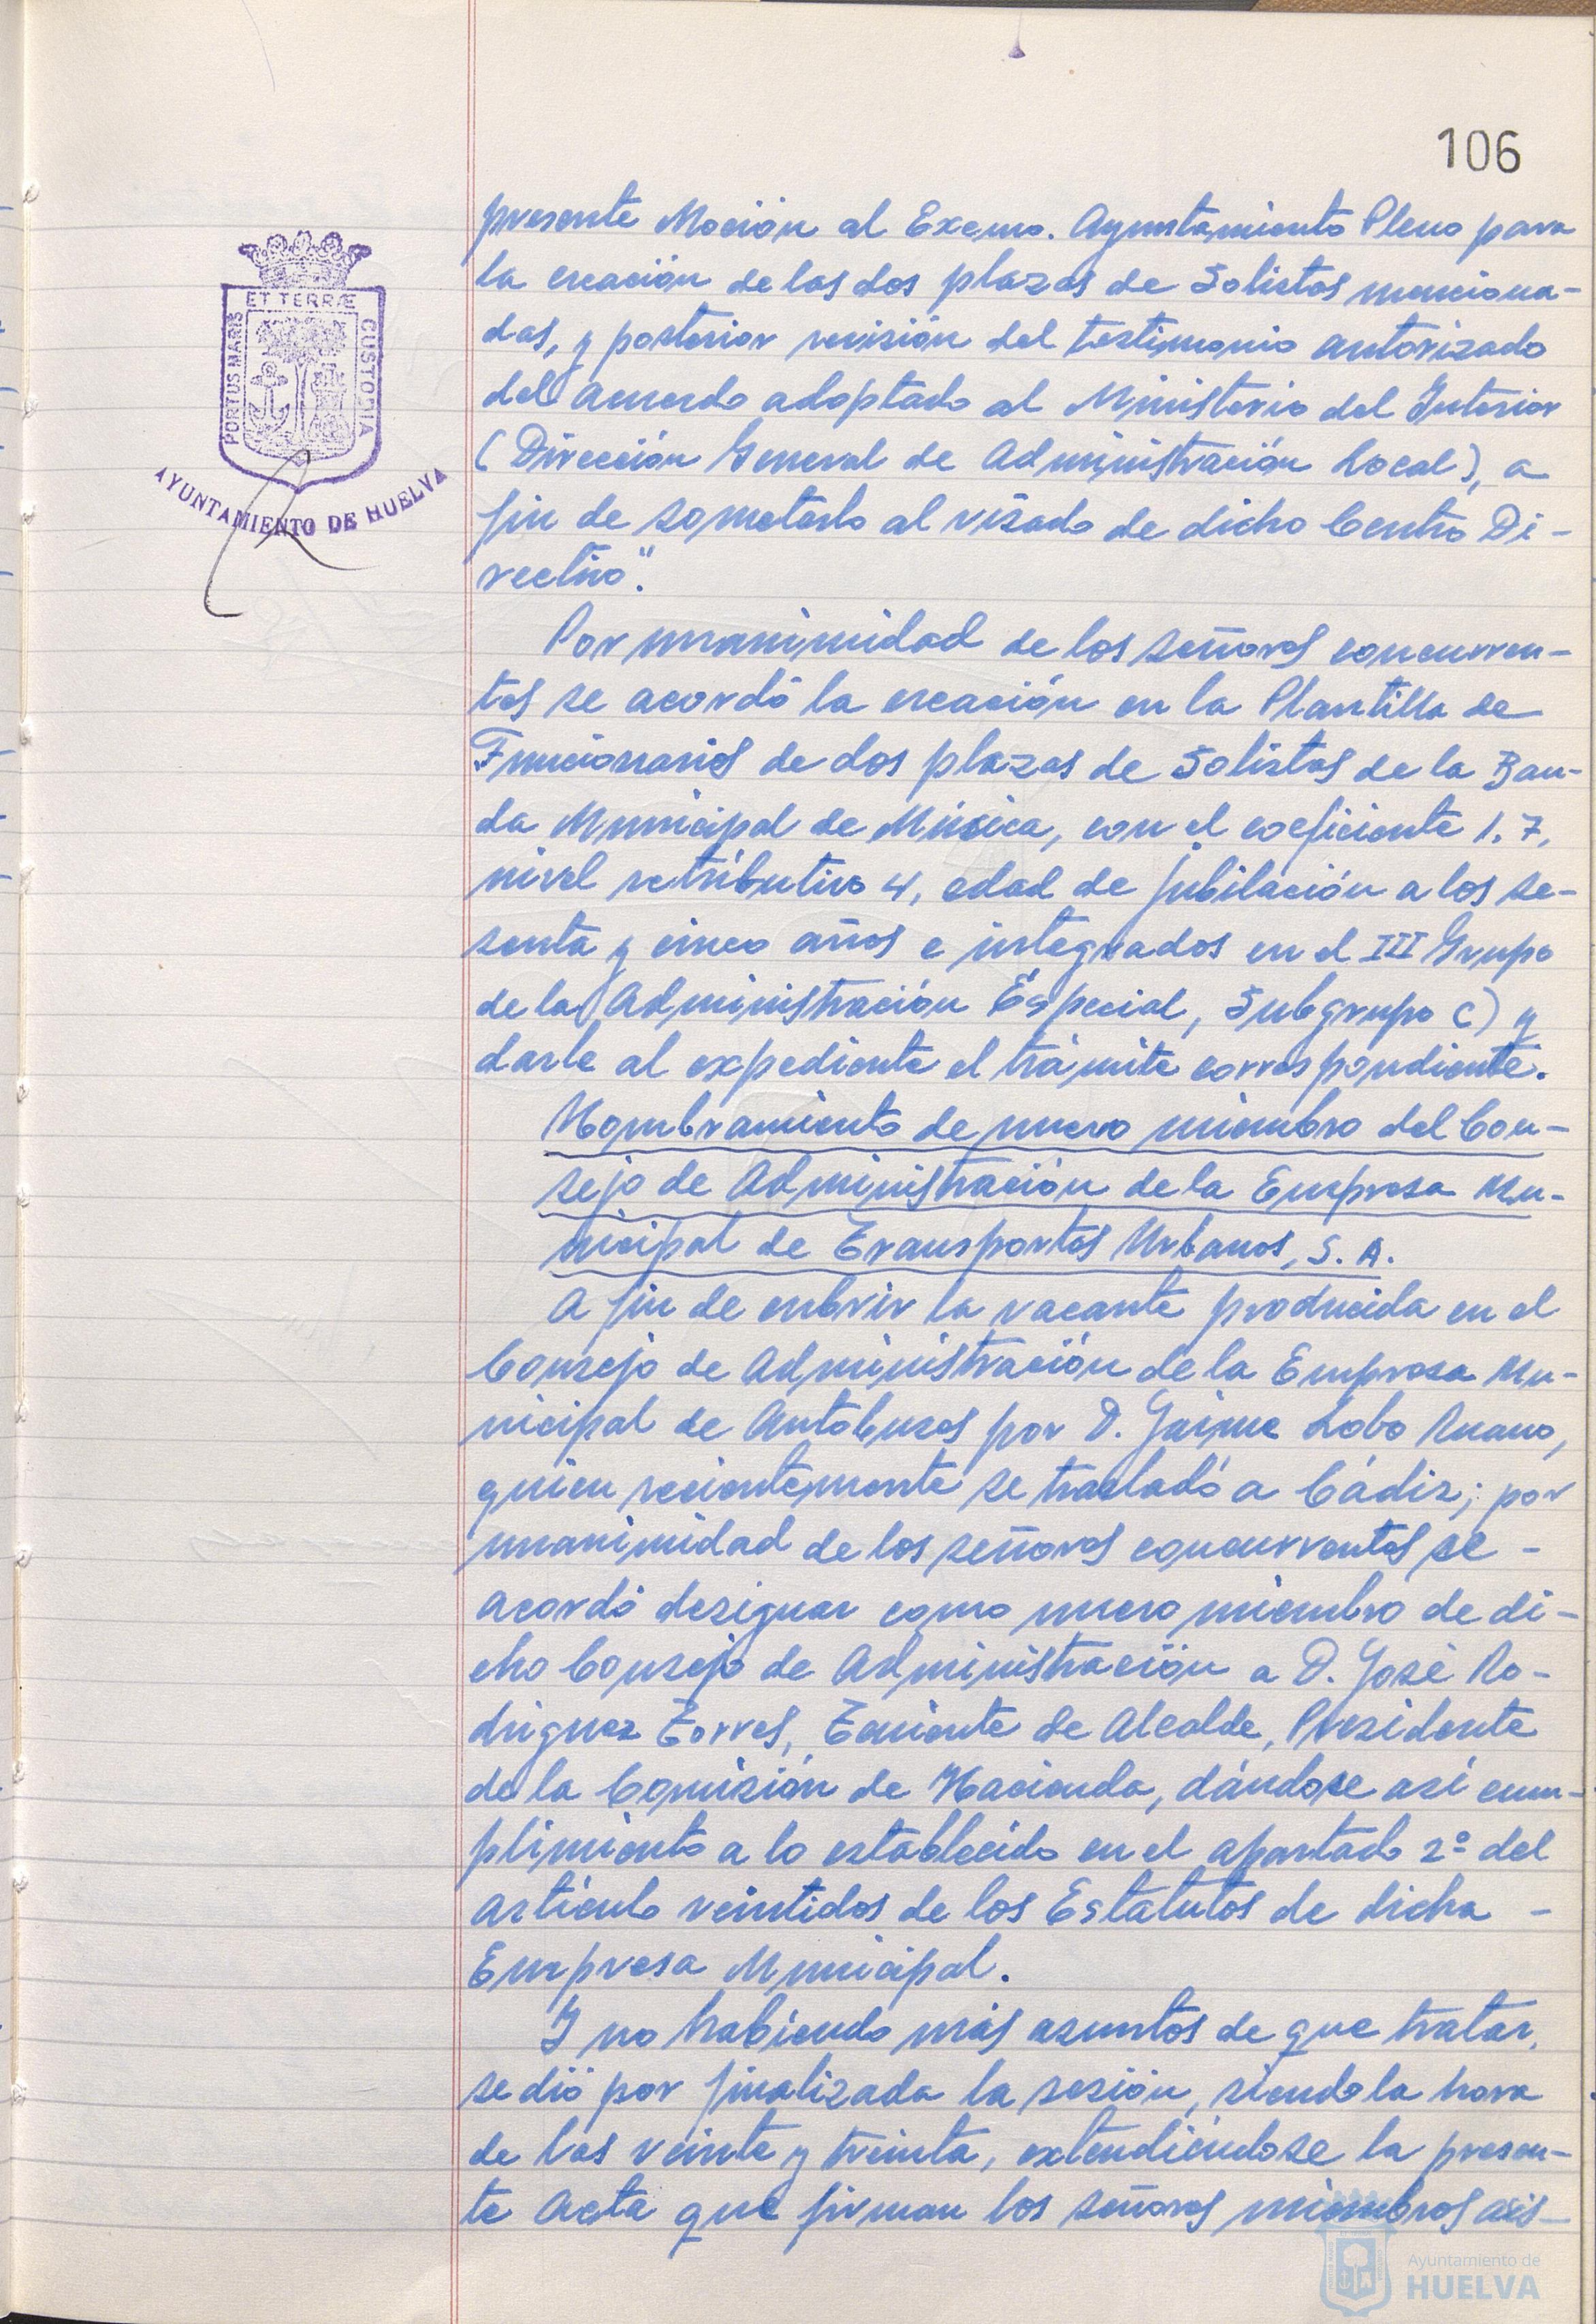 106
ET TERRÆ
PORTUS MARIS
CUSTODIA
AYUNTAMIENTO DE HUELVA
presente Moción al Excmo. Ayuntamiento Pleno para
la creación de las dos plazas de Solistas menciona-
das, y posterior revisión del testimonio autorizado
del acuerdo adoptado al Ministerio del Interior
(Dirección General de Administración Local), a
fin de someterlo al visado de dicho Centro Di-
rectivo".
Por unanimidad de los señores concurren-
tes se acordó la creación en la Plantilla de
Funcionarios de dos plazas de Solistas de la Ban-
da Municipal de Música, con el coeficiente 1.7,
nivel retributivo 4, edad de jubilación a los se-
senta y cinco años e integrados en el III Grupo
de la Administración Especial, Subgrupo C) y
darle al expediente el trámite correspondiente.
Nombramiento de nuevo miembro del Con-
sejo de Administración de la Empresa Mu-
nicipal de Transportes Urbanos, S. A.
A fin de cubrir la vacante producida en el
Consejo de Administración de la Empresa Mu-
nicipal de Autobuses por D. Jaime Lobo Ruano,
quien recientemente se trasladó a Cádiz; por
unanimidad de los señores concurrentes se -
acordó designar como nuevo miembro de di-
cho Consejo de Administración a D. José Ro-
driguez Torres, Teniente de Alcalde, Presidente
de la Comisión de Hacienda, dándose así cum-
plimiento a lo establecido en el apartado 2º del
artículo veintidos de los Estatutos de dicha -
Empresa Municipal.
Y no habiendo más asuntos de que tratar,
se dió por finalizada la sesión, siendo la hora
de las veinte y treinta, extendiéndose la presen-
te Acta que firman los señores miembros asis-
Ayuntamiento de
HUELVA